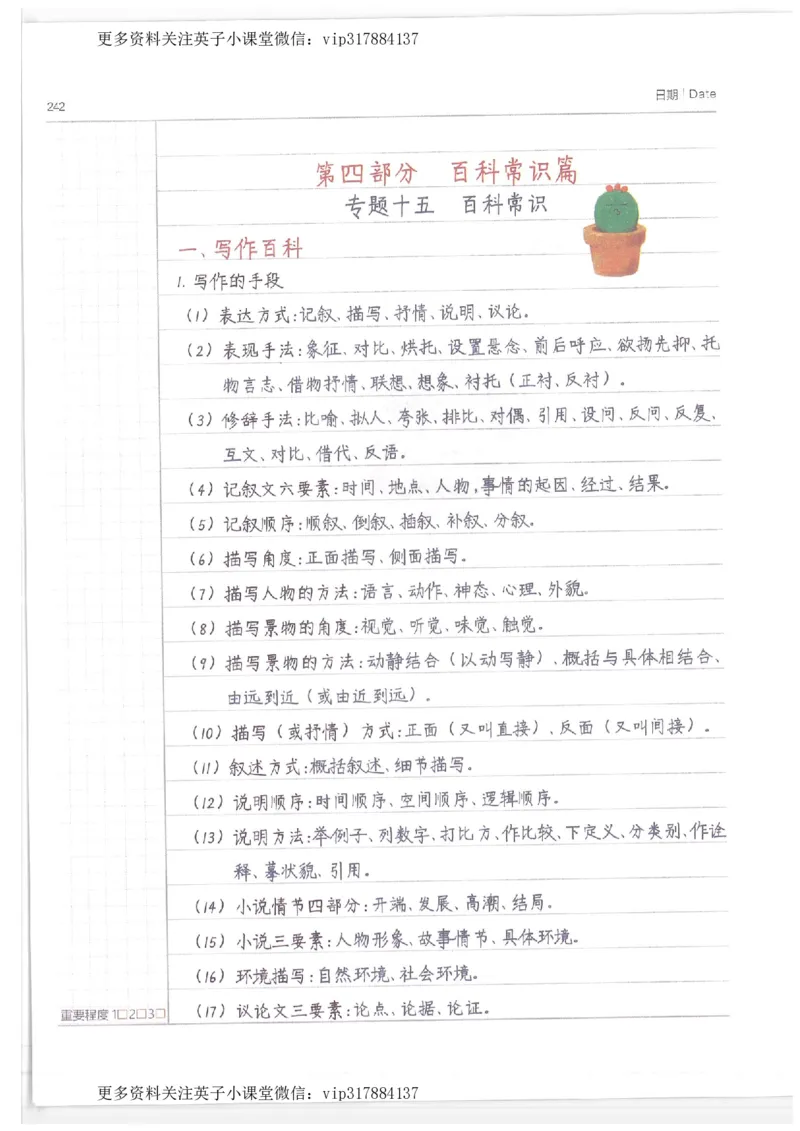 更多资料关注英子小课堂微信：vip317884137
242
日期 | Date
第四部分 百科常识篇
专题十五 百科常识
一、写作百科
1. 写作的手段
（1）表达方式:记叙、描写、抒情、说明、议论。
（2）表现手法:象征、对比、烘托、设置悬念、前后呼应、欲扬先抑、托
物言志、借物抒情、联想、想象、衬托（正衬、反衬）。
（3）修辞手法:比喻、拟人、夸张、排比、对偶、引用、设问、反问、反复、
互文、对比、借代、反语。
（4）记叙文六要素:时间、地点、人物,事情的起因、经过、结果。
（5）记叙顺序:顺叙、倒叙、插叙、补叙、分叙。
（6）描写角度:正面描写、侧面描写。
（7）描写人物的方法:语言、动作、神态、心理、外貌。
（8）描写景物的角度:视觉、听觉、味觉、触觉。
（9）描写景物的方法:动静结合（以动写静）、概括与具体相结合、
由远到近（或由近到远）.
（10）描写（或抒情）方式:正面（又叫直接）、反面（又叫间接）。
（11）叙述方式:概括叙述、细节描写。
（12）说明顺序:时间顺序、空间顺序、逻辑顺序。
（13）说明方法:举例子、列数字、打比方、作比较、下定义、分类别、作诠
释、摹状貌、引用。
（14）小说情节四部分:开端、发展、高潮、结局.
（15）小说三要素:人物形象、故事情节、具体环境。
（16）环境描写:自然环境、社会环境。
（17）议论文三要素:论点、论据、论证。
重要程度 1□2□3□
更多资料关注英子小课堂微信：vip317884137